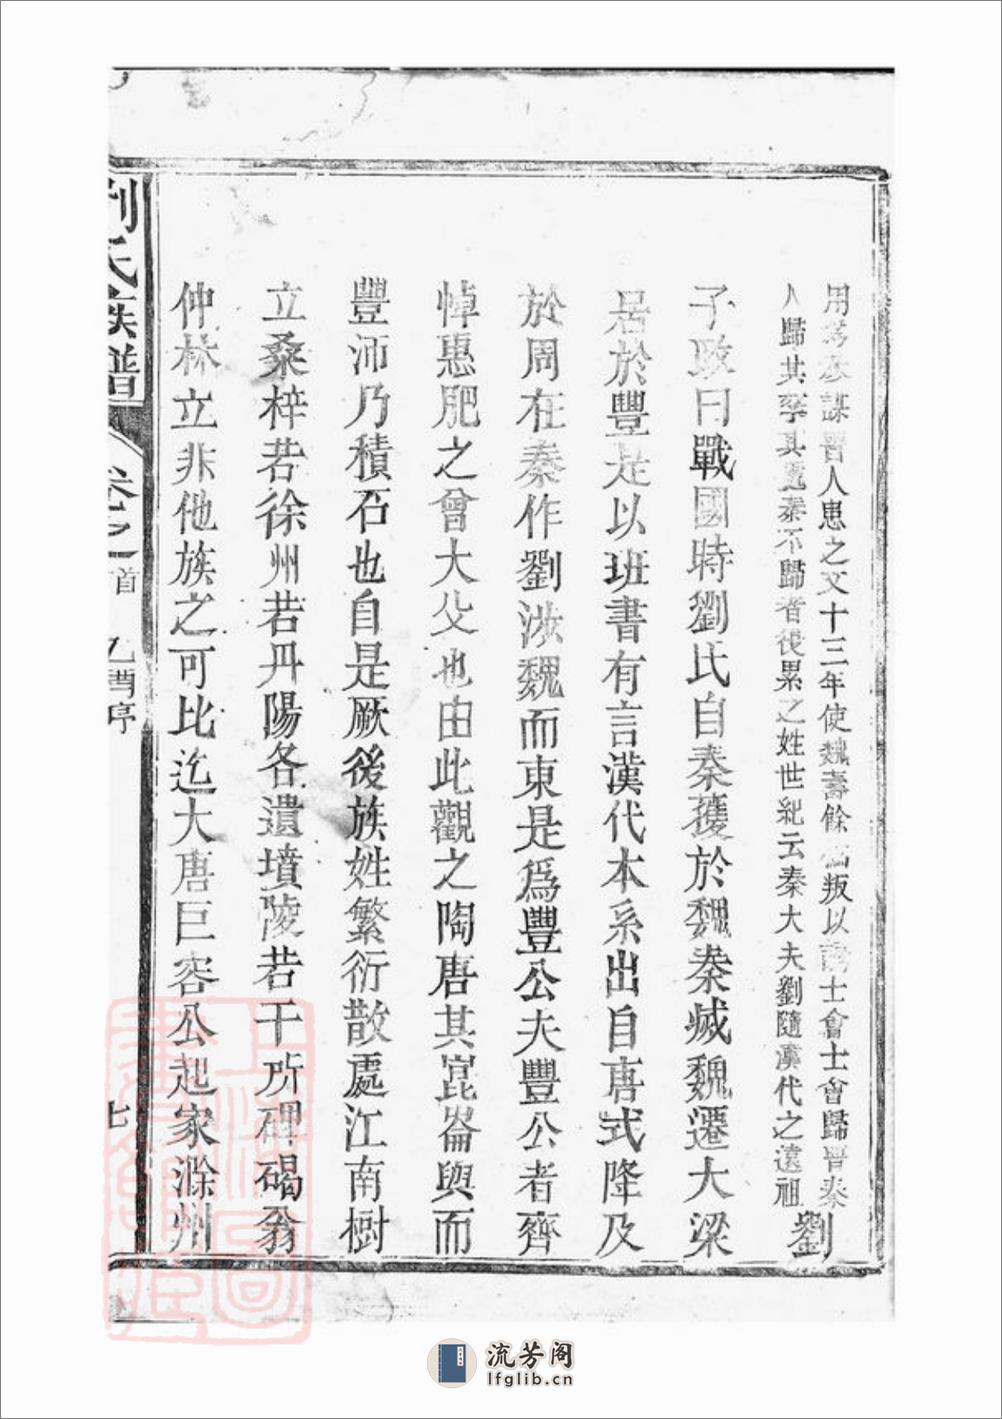 用爲本謀晉人患之文十三年使魏壽餘叛以誘士會士會歸晉秦
人歸其孥其處秦不歸者後累之姓世紀云秦大夫劉隨漢代之遠祖
劉
子政曰戰國時劉氏自秦獲於魏秦滅魏遷大梁
居於豐是以班書有言漢代本系出自唐式降及
於周在秦作劉涉魏而東是爲豐公夫豐公者齊
悼惠肥之曾大父也由此觀之陶唐其崑崙與而
豐沛乃積石也自是厥後族姓繁衍散處江南樹
立桑梓若徐州若丹陽各遺墳陵若干所碑碣翁
仲林立非他族之可比迄大唐巨容公起家滁州
劉氏族譜
卷之首
乙酉序
七
流芳阁
lfglib.cn